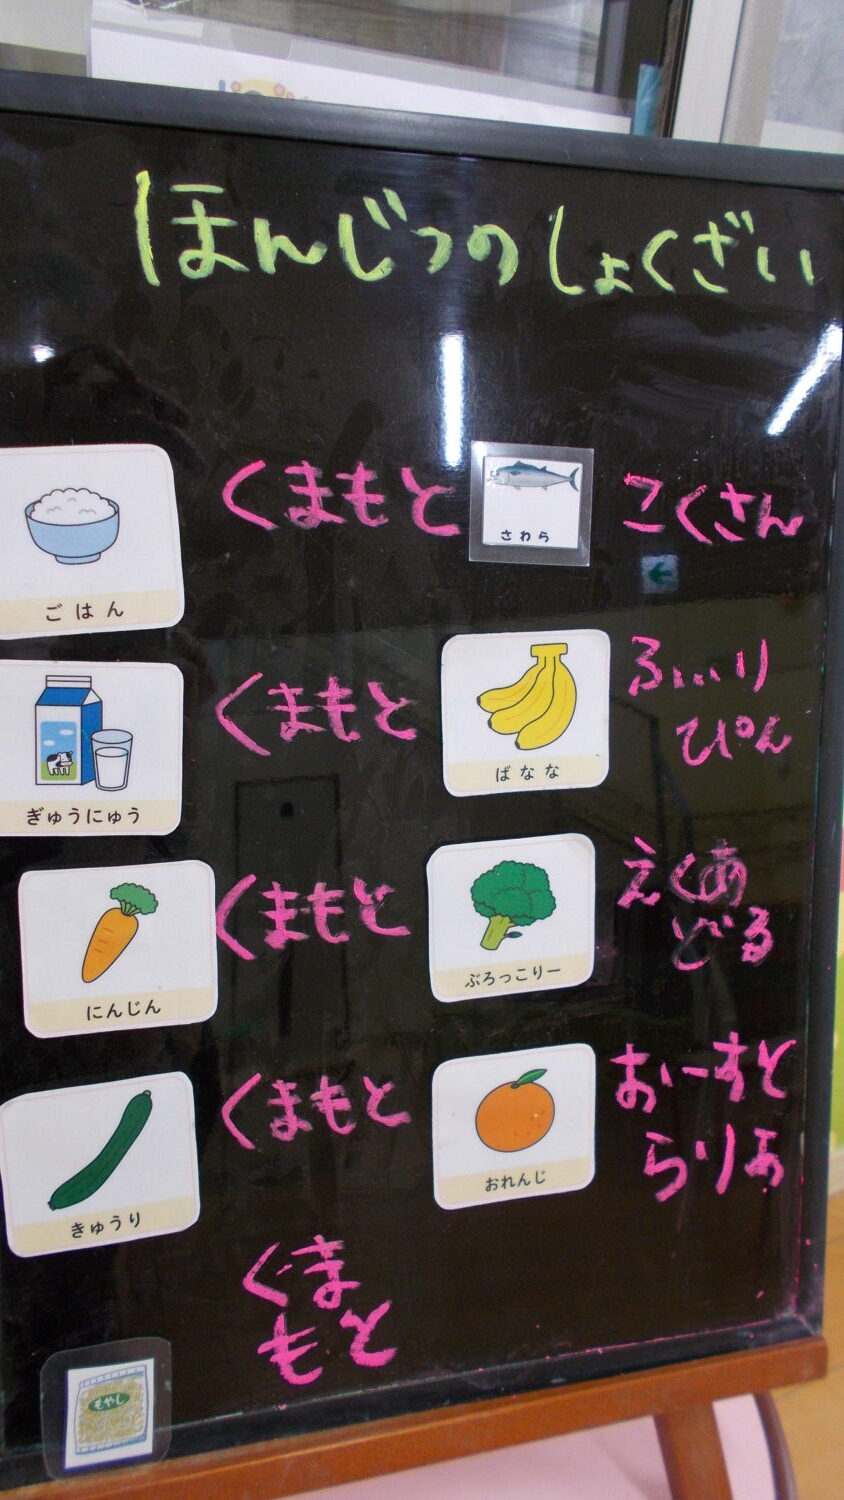 ほんじつのしょくざい
ごはん
くまもと
さわら
こくさん
ぎゅうにゅう
くまもと
ばなな
ふぃり
ぴん
にんじん
くまもと
ぶろっこりー
えくあ
どる
きゅうり
くまもと
おれんじ
おーすと
らりあ
もやし
くま
もと